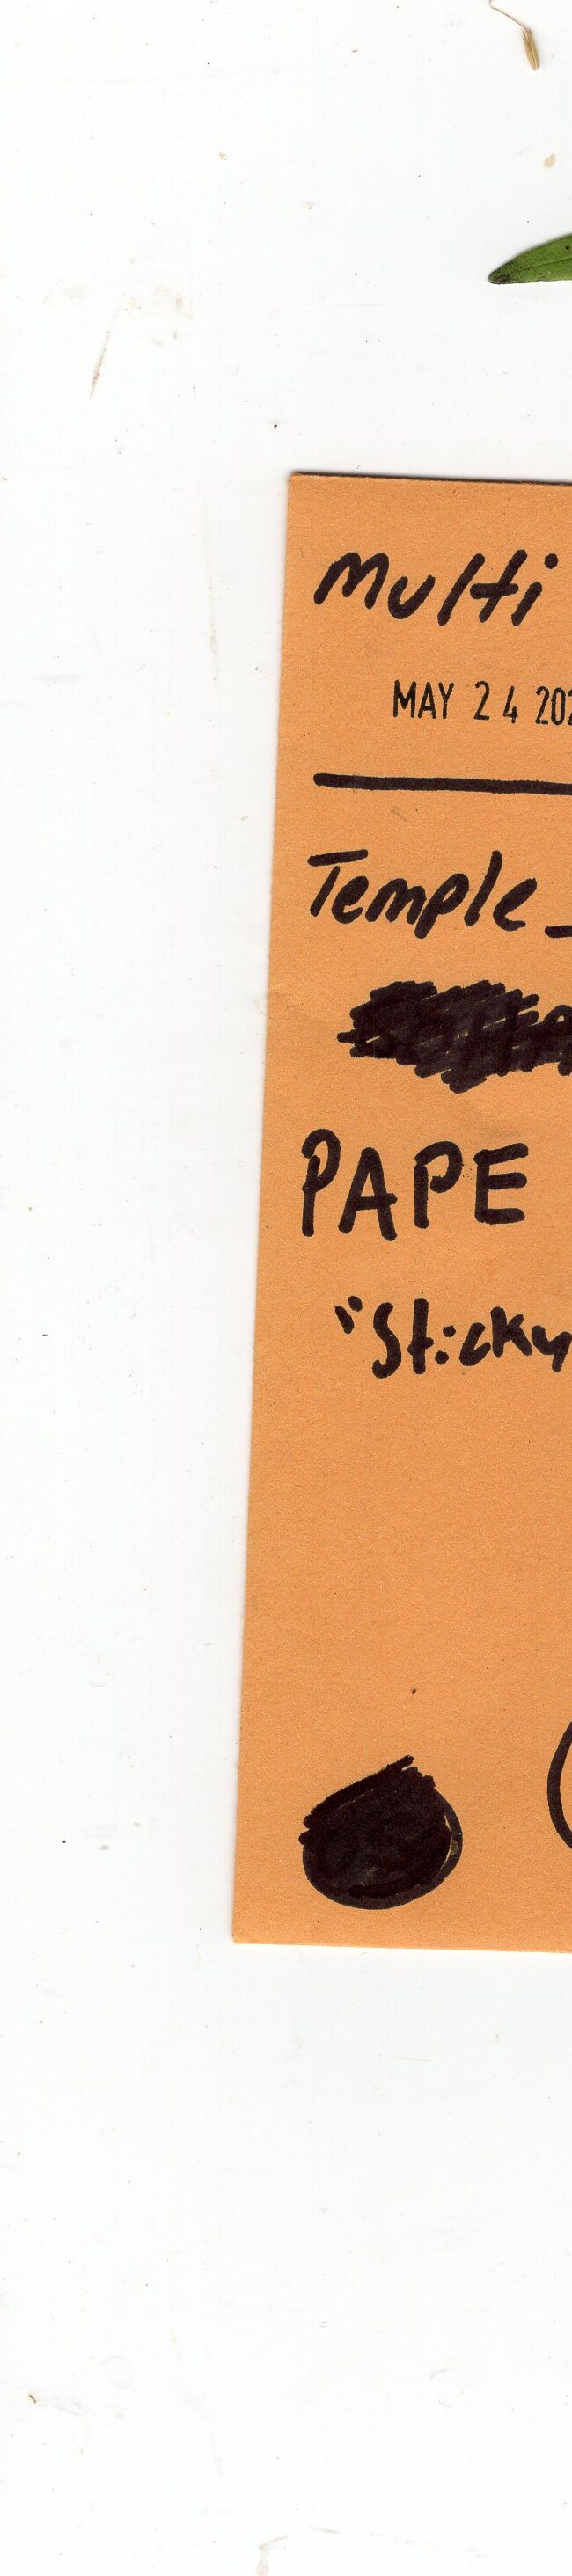 Multi
MAY 24 202
Temple
PAPE
"Sticky